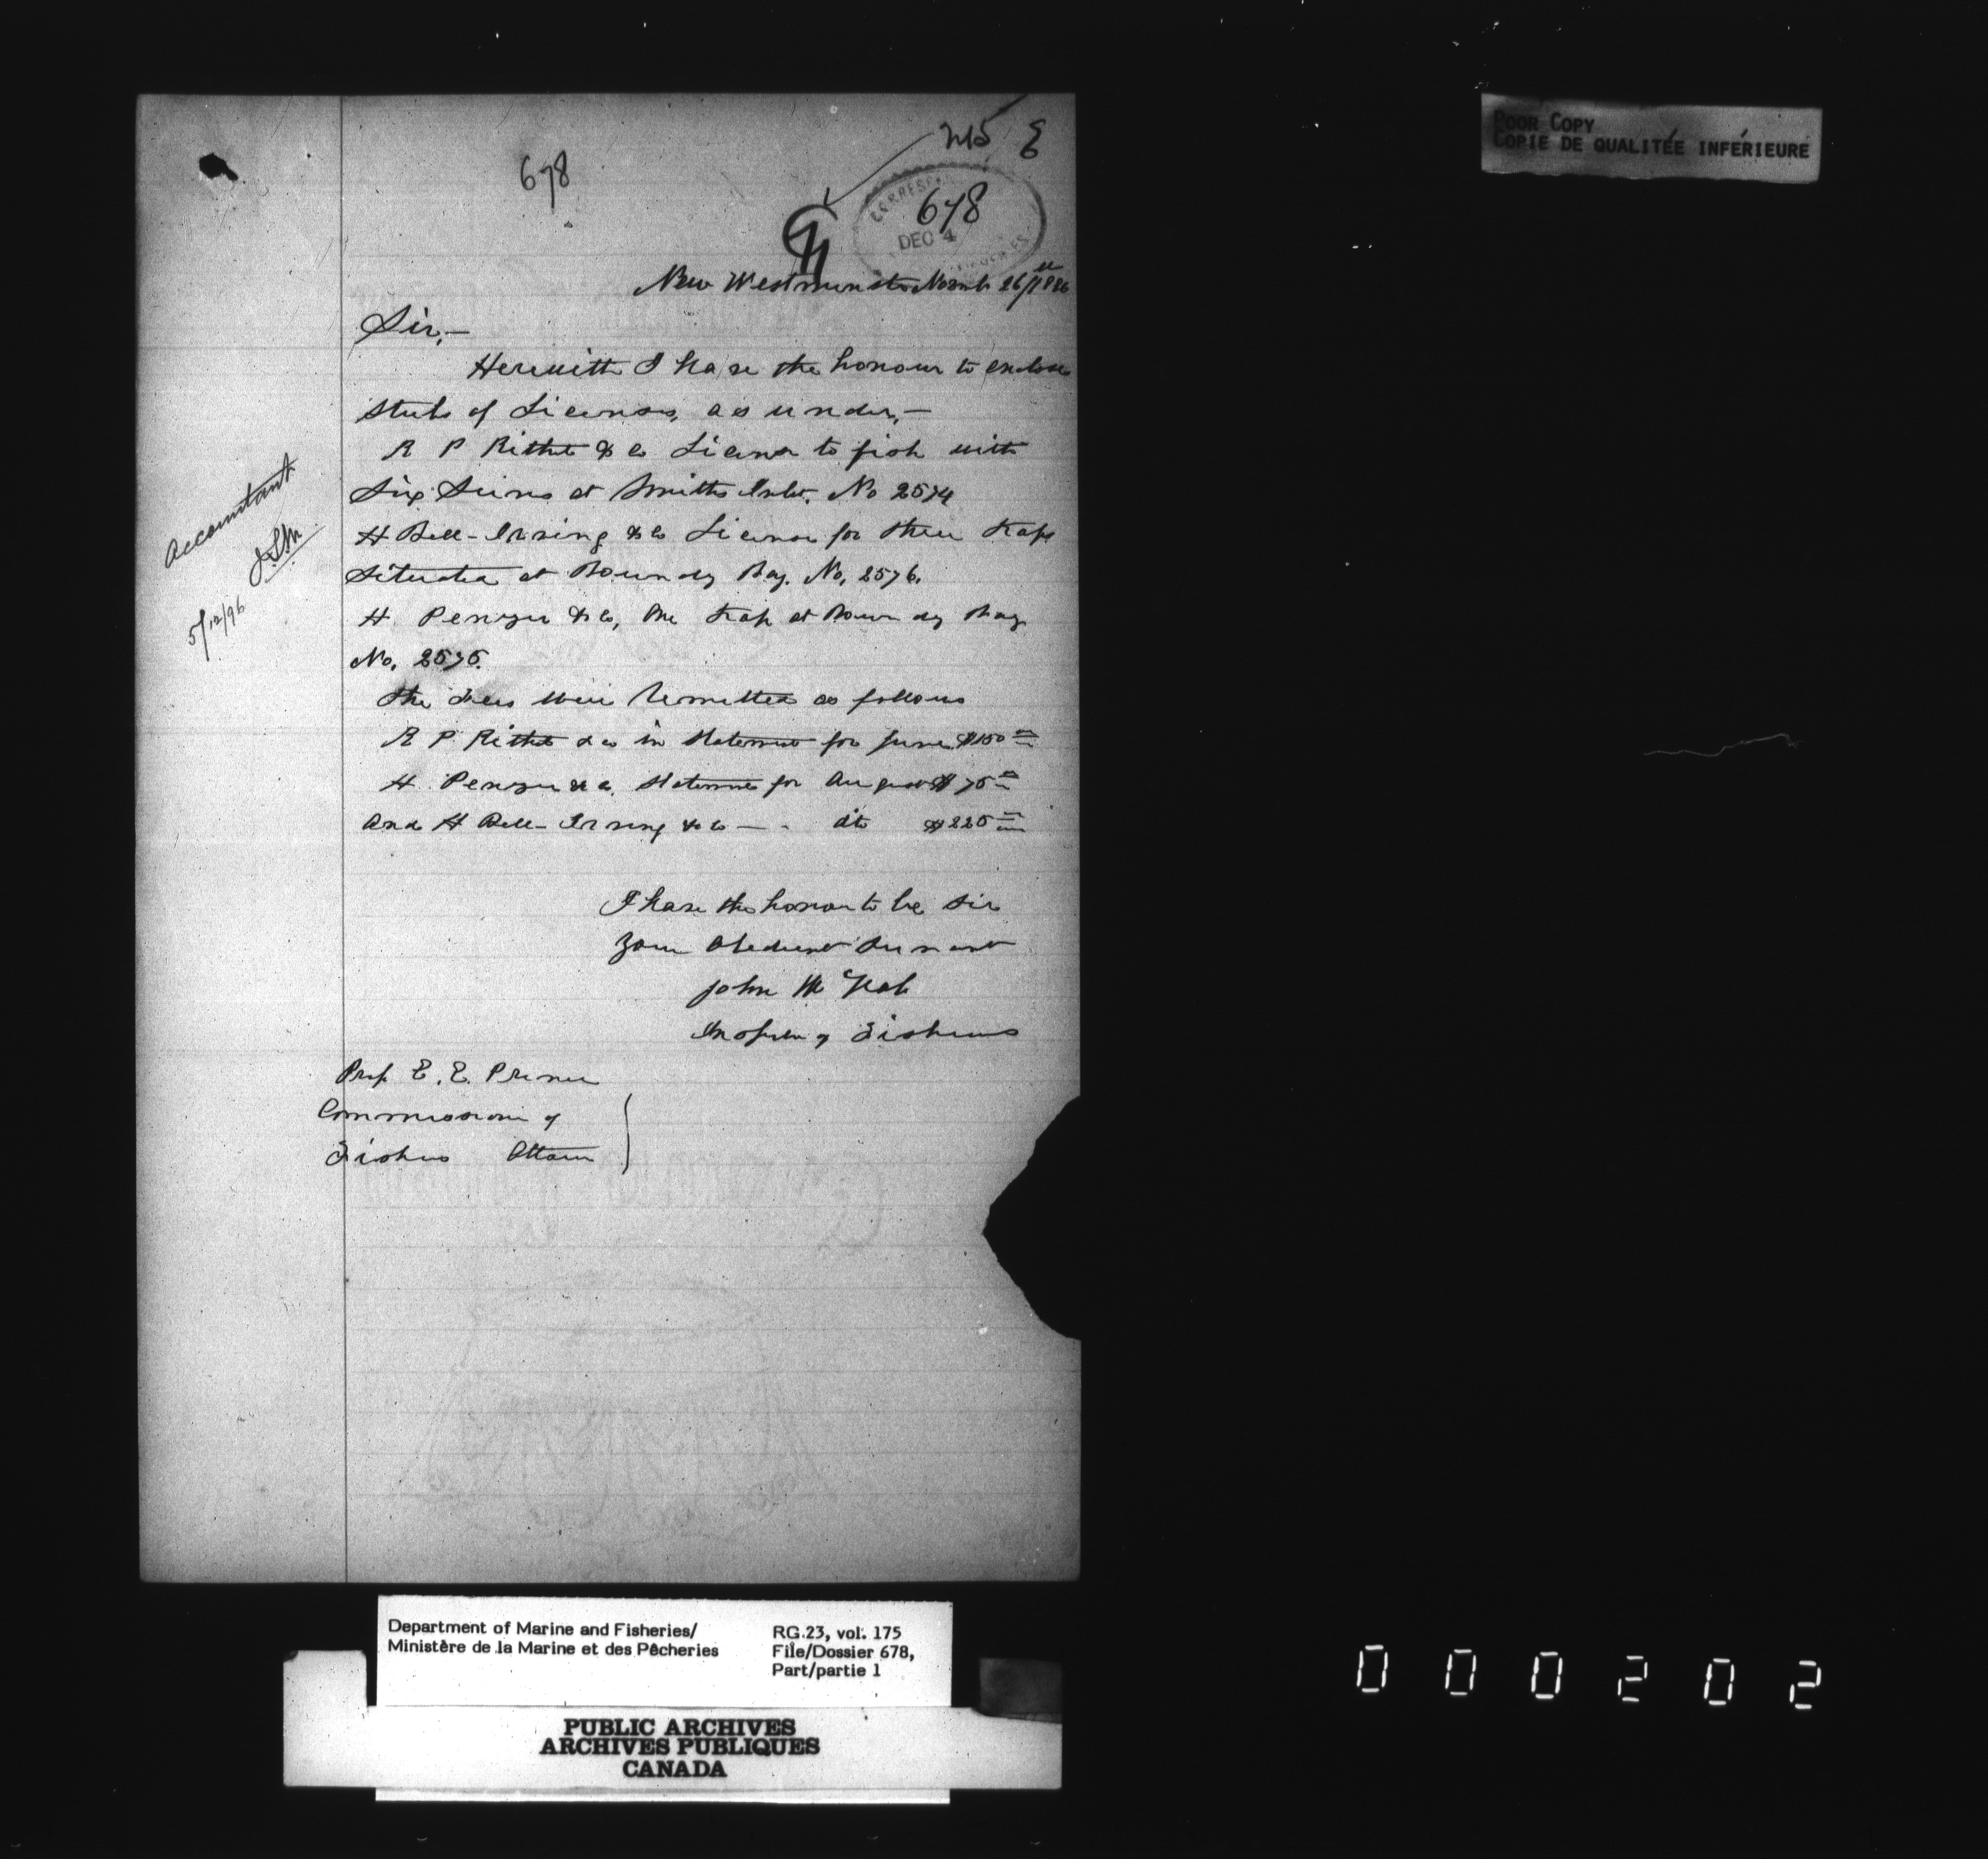 POOR COPY
COPIE DE QUALITÉE INFÉRIEURE
215 E
678
CORRESP
678
DEC 4
New Westminster Novmb 26th/1896
Sir,—
Herewith I have the honour to enclose
Stubs of Licenses, as under,—
R P Rithet & Co License to fish with
Six Seines at Smiths Inlet. No 2574
H Bell-Irving & Co License for three traps
Situated at Boundy Bay. No, 2576.
H. Penzer & Co, One trap at Boundy Bay
No. 2575.
The Fees were remitted as follows
R P. Rithet & Co in Statement for June $150 00
H. Penzer & Co. Statement for August $75 00
and H Bell-Irving & Co — - dto $225 00
I have the honor to be Sir
Your Obedient Servant
John McNab
Inspector of Fisheries
Prof. E. E. Prince
Commissioner of
Fisheries Ottawa
Accountant
5/12/96
Department of Marine and Fisheries/
Ministère de la Marine et des Pêcheries
RG 23, vol. 175
File/Dossier 678,
Part/partie 1
PUBLIC ARCHIVES
ARCHIVES PUBLIQUES
CANADA
000202